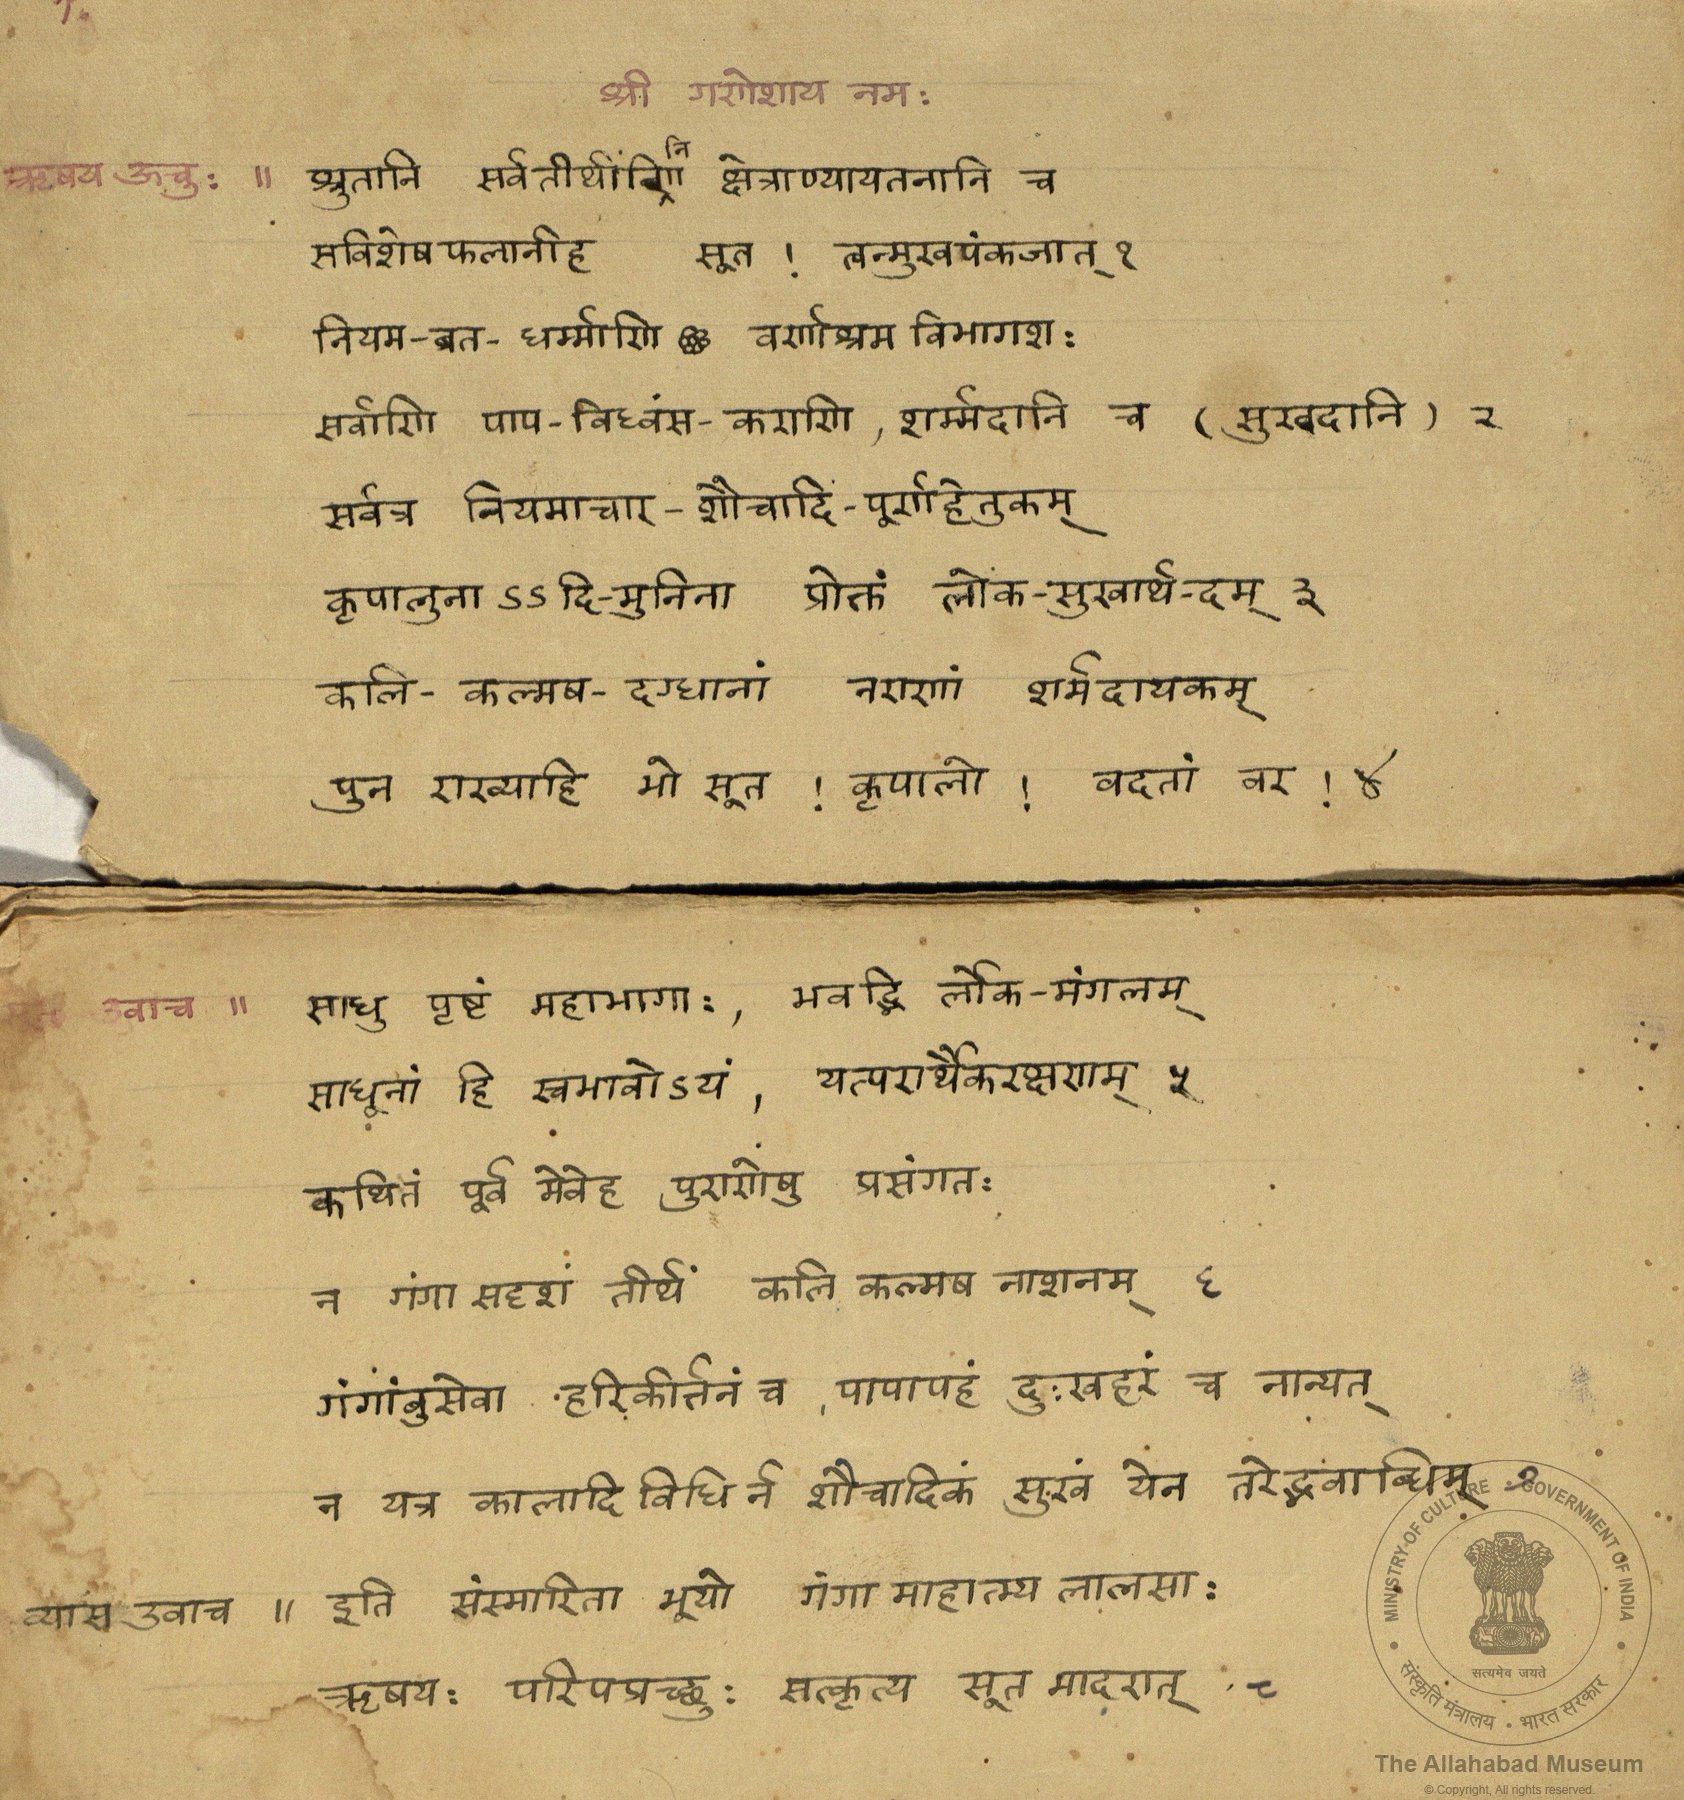 १.
श्री गणेशाय नमः
ऋषय ऊचुः ॥ श्रुतानि सर्वतीर्थानि क्षेत्राण्यायतनानि च
सविशेषफलानीह सूत ! त्वन्मुखपंकजात् १
नियम-व्रत-धर्म्माणि वर्णाश्रम विभागशः
सर्वाणि पाप-विध्वंस-कराणि, शर्म्मदानि च (सुखदानि) २
सर्वत्र नियमाचार-शौचादि-पूर्णहेतुकम्
कृपालुना ऽऽदि-मुनिना प्रोक्तं लोक-सुखार्थ-दम् ३
कलि-कल्मष-दग्धानां नराणां शर्मदायकम्
पुन राख्याहि भो सूत ! कृपालो ! वदतां वर ! ४
उवाच ॥ साधु पृष्टं महाभागाः, भवद्भि र्लोक-मंगलम्
साधूनां हि स्वभावोऽयं, यत्परार्थैकरक्षणम् ५
कथितं पूर्व मेवेह पुराणेषु प्रसंगतः
न गंगा सदृशं तीर्थं कलि कल्मष नाशनम् ६
गंगांबुसेवा हरिकीर्त्तनं च, पापापहं दुःखहरं च नान्यत्
न यत्र कालादि विधि र्न शौचादिकं सुखं येन तरेद्भवाब्धिम् ७
व्यास उवाच ॥ इति संस्मारिता भूयो गंगा माहात्म्य लालसाः
ऋषयः परिपप्रच्छुः सत्कृत्य सूत मादरात् ८
MINISTRY OF CULTURE • GOVERNMENT OF INDIA
सत्यमेव जयते
संस्कृति मंत्रालय • भारत सरकार
The Allahabad Museum
© Copyright, All rights reserved.